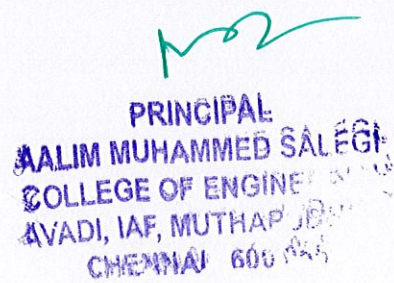 PRINCIPAL
AALIM MUHAMMED SALEGH
COLLEGE OF
AVADI, IAF,
CHENNAI 600